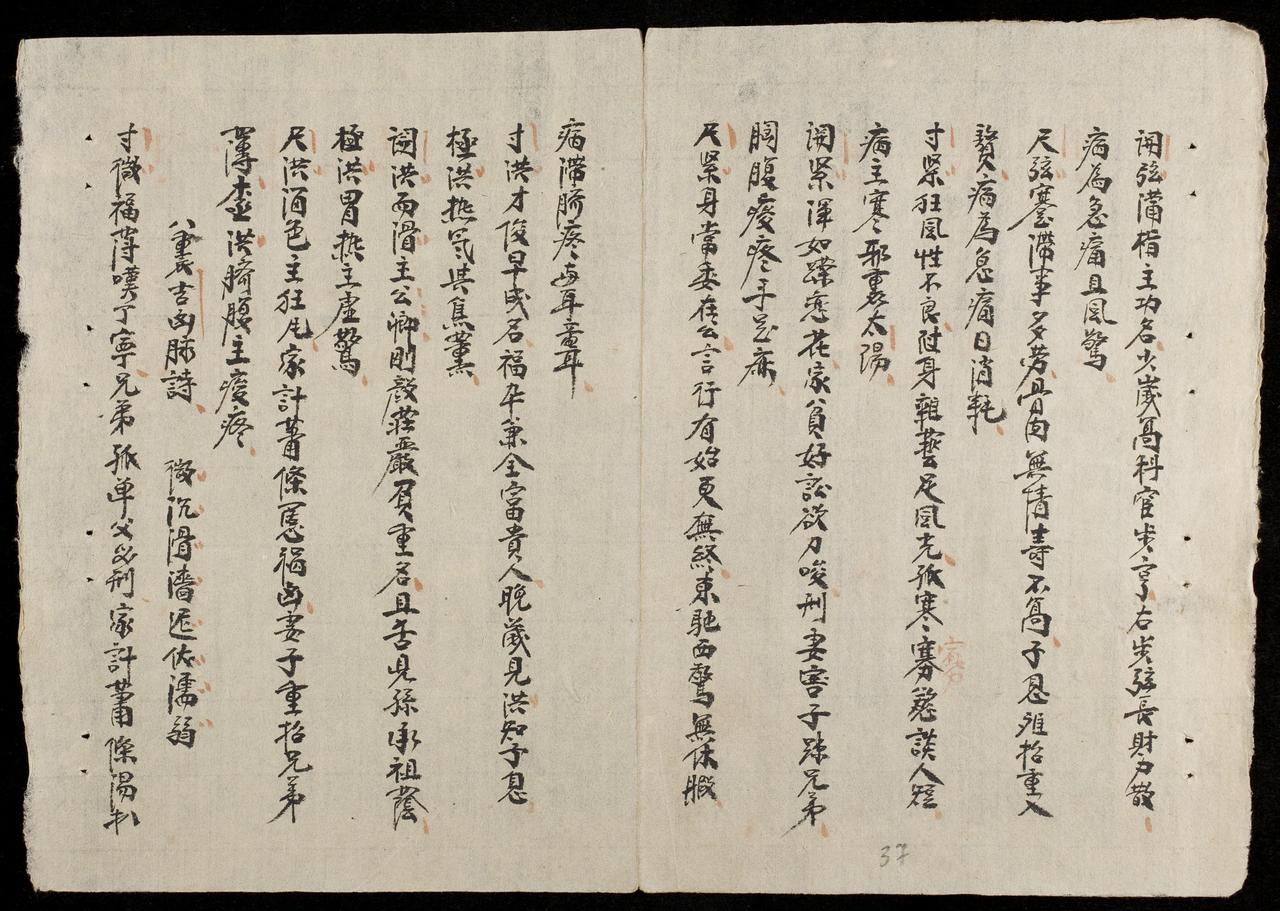 関弦滿指主功名少歲高科官步亨右步弦長財力散
病為急痛且風驚
尺弦蹇滯事多劳骨肉無情壽不高子息难招重入
贅病為急痛日消耗
寸緊狂風性不良隨身雜藝足風光孤寒寡慾談人短
病主寒邪裏太陽
関緊渾如蝶恋花家貧好訟欲刀唆刑妻害子踈兄弟
胸腹痠疼手足麻
尺緊身當委在公言行有始更無終東馳西驚無休暇
37
病滯臍疼每耳聾耳
寸洪才俊早成名福禄兼全富貴人晚歲見洪知子息
極洪熱氣其焦薰
関洪而滑主公卿剛毅莊嚴負重名且舌見孫承祖蔭
極洪胃熱主虛驚
尺洪酒色主狂凡家計蕭條罵禍凶妻子重招兄弟
薄 洪臍腹主痠疼
八裏吉凶脉詩 微沉滑濇遲伏濡弱
寸微福薄嘆丁寧兄弟孤单父必刑家計蕭條湯